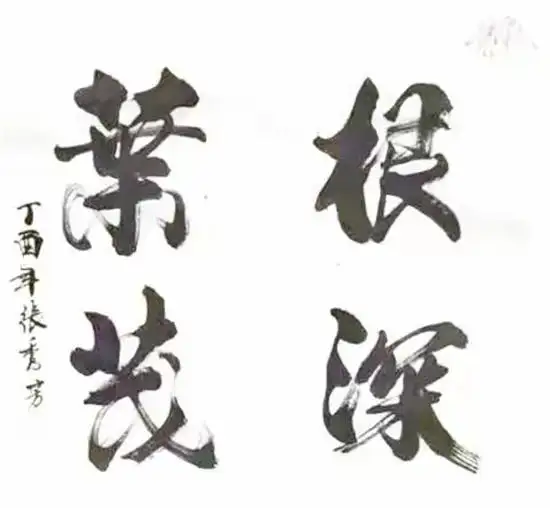 根深
葉茂
丁酉年張秀芳